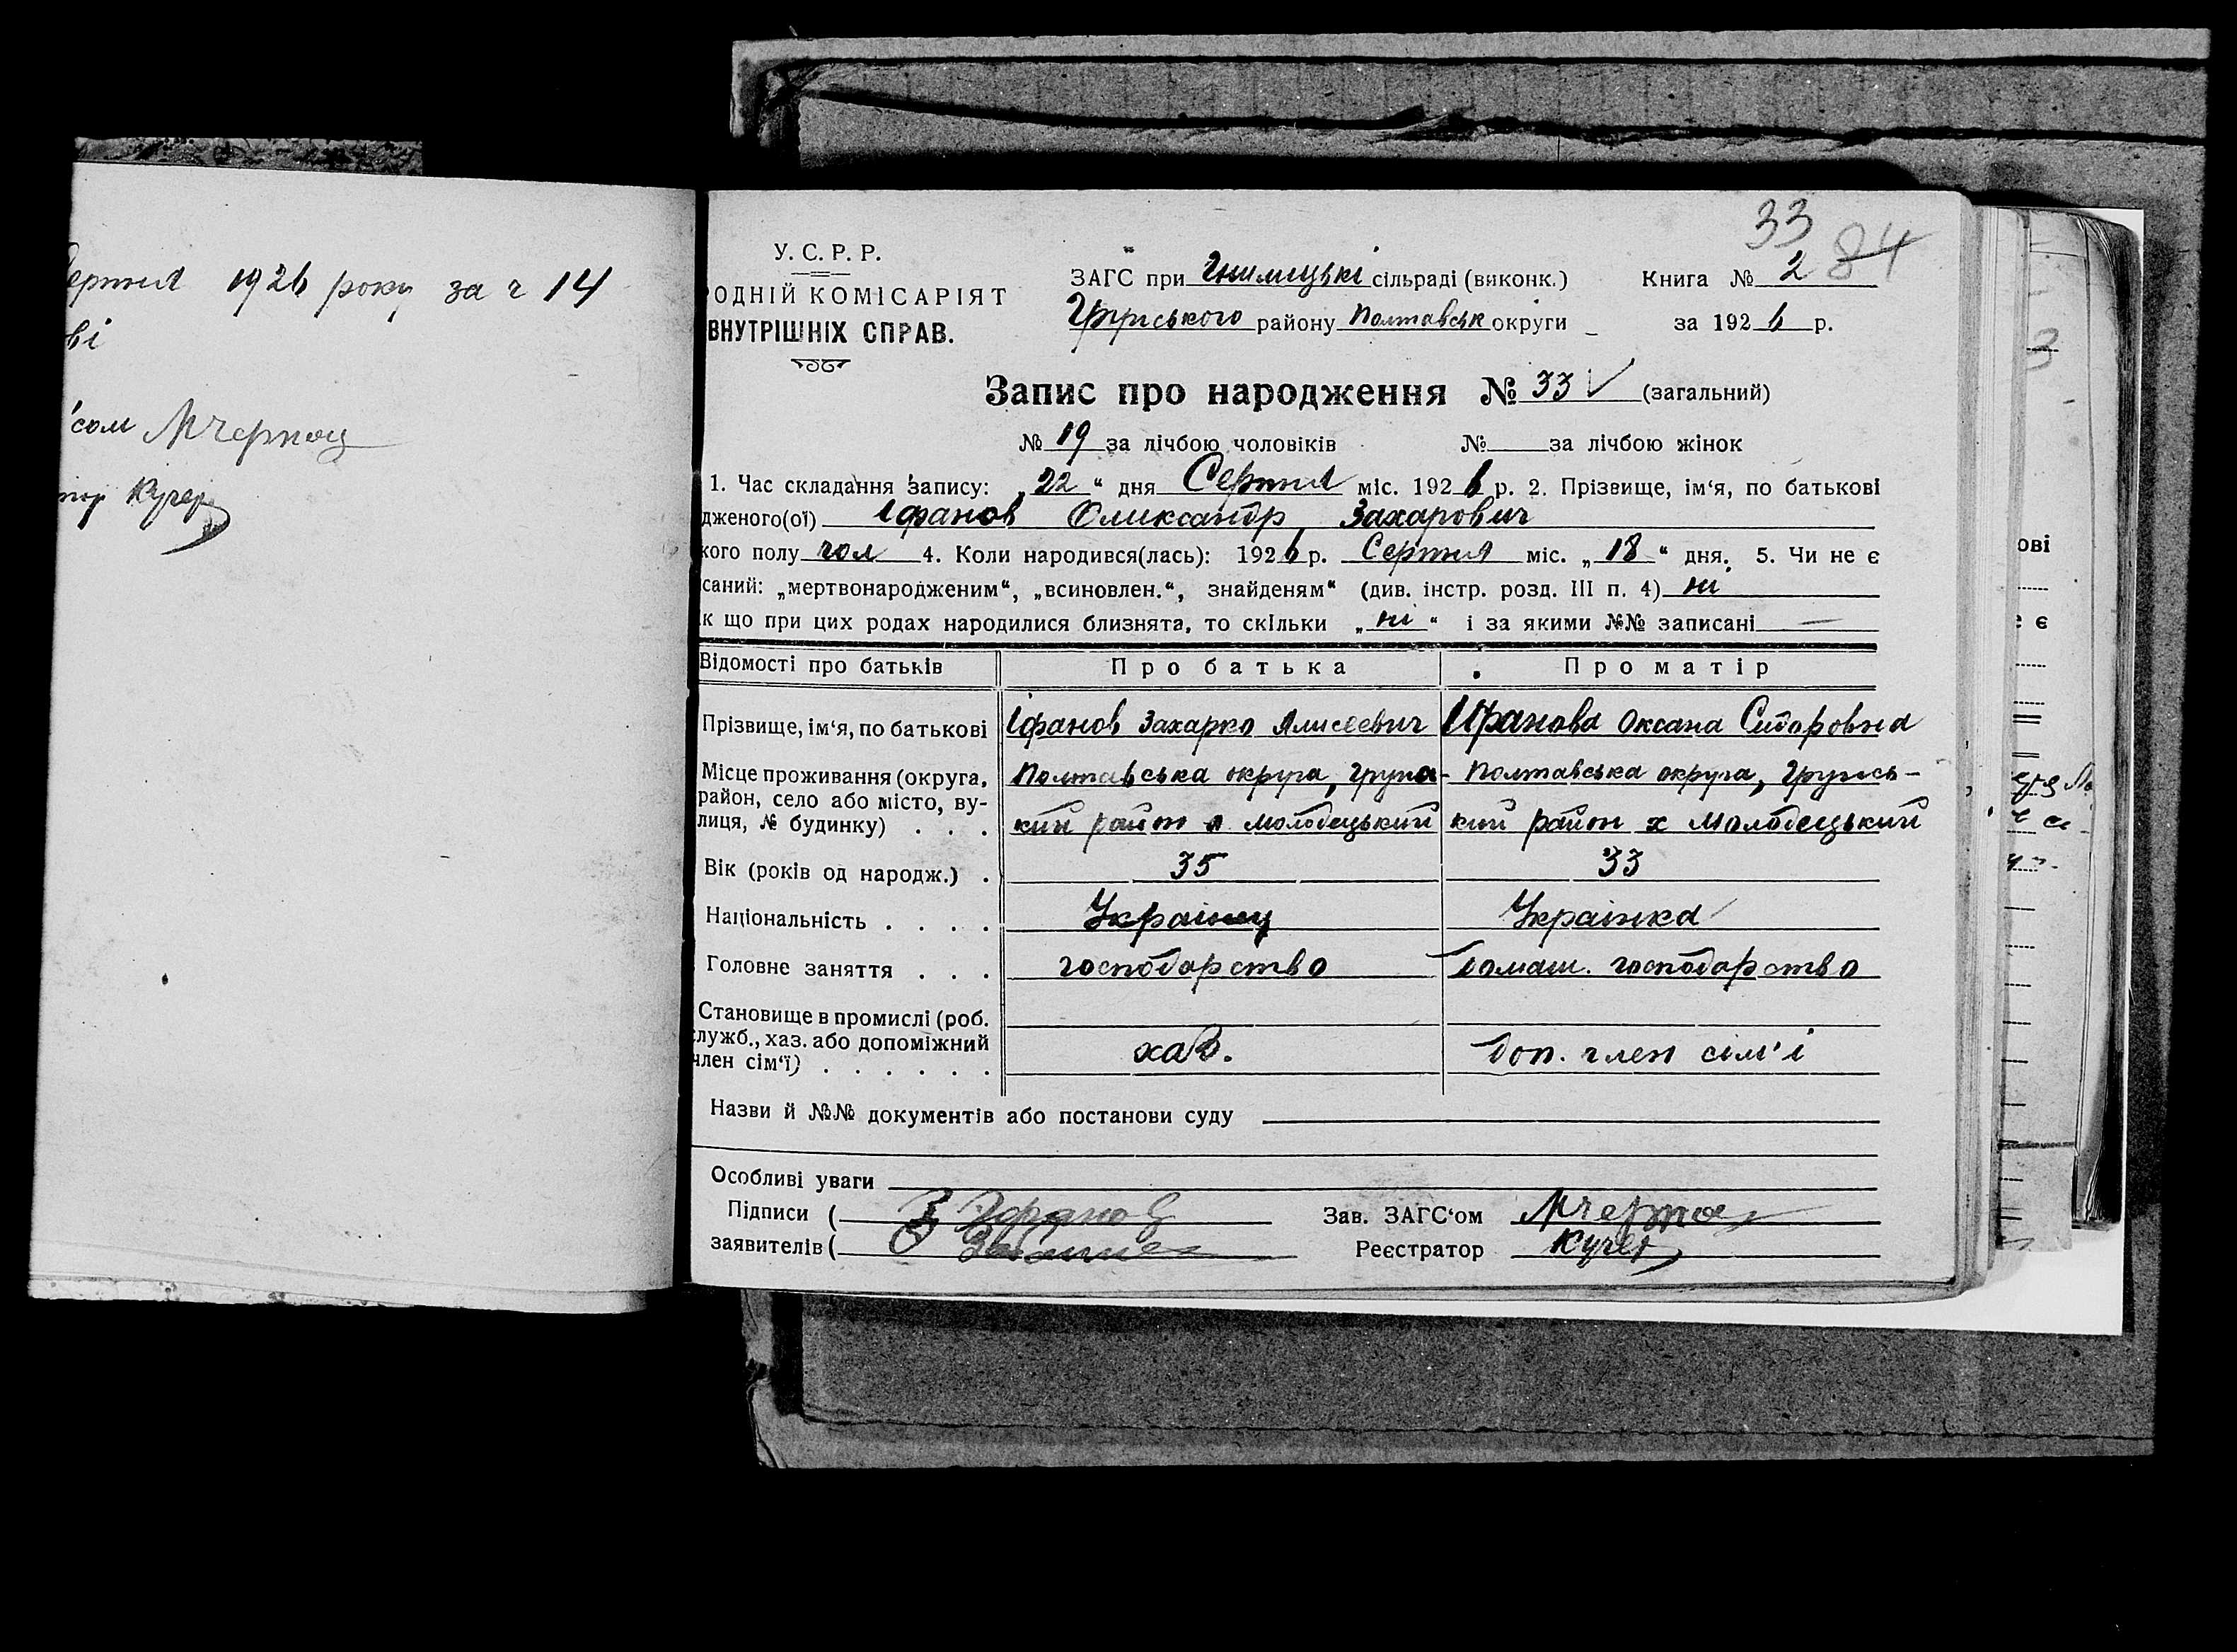 1926 року за ч 14
ві
сом МЧерноу
Кучер
33
84
У. С. Р. Р.
ОДНІЙ КОМІСАРІЯТ
ВНУТРІШНІХ СПРАВ.
ЗАГС при Гнилицькі сільраді (виконк.)
Грунського району Полтавськ округи
Книга № 2
за 1926 р.
Запис про народження № 33 (загальний)
№ 19 за лічбою чоловіків № за лічбою жінок
1. Час складання запису: „22“ дня Серпня міс. 1926 р. 2. Прізвище, ім‘я, по батькові
дженого(ої) Іфанов Олександр Захарович
кого полу чол 4. Коли народився(лась): 1926 р. Серпня міс. „18“ дня. 5. Чи не є
саний: „мертвонародженим“, „всиновлен.“, знайденям“ (див. інстр. розд. III п. 4) ні
к що при цих родах народилися близнята, то скільки „ні“ і за якими №№ записані —
Відомості про батьків Про батька Про матір
Прізвище, ім‘я, по батькові Іфанов Захарко Ялисеевич Ифанова Оксана Сидоровна
Місце проживання (округа, район, село або місто, вулиця, № будинку) . . .
Полтавська округа, Грунський район х Молодецький
Полтавська округа, Грунський район х Молодецький
Вік (років од народж.) . 35 33
Національність . . . . Українец Українка
Головне заняття . . . господарство домаш. господарство
Становище в промислі (роб.
служб., хаз. або допоміжний
член сім‘ї) . . . . . . хаз. доп. член сім'і
Назви й №№ документів або постанови суду
Особливі уваги
Підписи (
заявителів (
Зав. ЗАГС‘ом МЧерноу
Реєстратор Кучер
ові
є